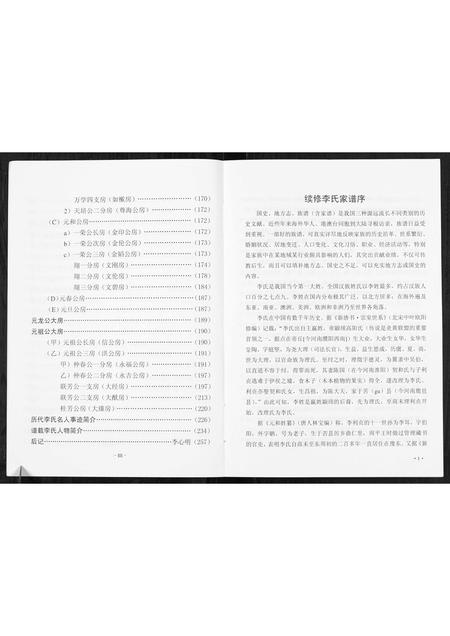 万学四支房（如檄房）……………………（170）
2）天培公二分房（尊海公房）……………（172）
（C）元和公房……………………………（172）
a）一荣公长房（金印公房）……………（172）
b）一荣公次房（金伦公房）……………（173）
c）一荣公三房（金韬公房）……………（173）
翔一分房（文刚房）……………………（174）
翔二分房（文伦房）……………………（178）
翔三分房（文碧房）……………………（184）
（D）元春公房……………………………（187）
（E）元旦公房……………………………（187）
元龙公大房………………………………（189）
元祖公大房………………………………（190）
（甲）元祖公长房（信公房）……………（190）
（乙）元祖公三房（洪公房）……………（191）
甲）仲春公一分房（永福公房）…………（191）
乙）仲春公二分房（永吉公房）…………（191）
联芳公一支房（大经房）…………………（197）
联芳公二支房（大猷房）…………………（213）
桂芳公房（大缘房）………………………（220）
历代李氏名人事迹简介……………………（226）
谱载李氏人物简介…………………………（234）
后记……………………………李心明（257）
· III ·
续修李氏家谱序
国史、地方志、族谱（含家谱）是我国三种源远流长不同类别的历
史文献。近些年来海外华人、港澳台同胞到大陆寻根访亲，族谱日益受
到重视。一部好的族谱，可真实详尽地反映家族的历史沿革、世系繁衍、
婚姻状况、居地变迁、人口变化、文化习俗、职业、经济活动等，特别
是家族中在某地域某行业颇具影响的人们，其突出贡献业绩，不仅可传
教后生，而且可以填补地方志、国史之不足，可以充实地方志或国史的
内容。
李氏是我国当今第一大姓。全国汉族姓氏以李姓最多，约占汉族人
口百分之七点九。李姓在国内分布极其广泛，以北方居多；在海外遍及
东亚、南亚、澳洲、美洲、欧洲和非洲乃至世界各地。
李氏在中国有数千年历史。据《新唐书·宗室世系》（北宋中叶欧阳
修编）记载，“李氏出自嬴姓，帝颛顼高阳氏（传说是炎黄联盟的重要
首领之一，据点在帝丘[今河南濮阳西南]）生大业，大业生女华，女华生
皋陶，字庭坚，为尧大理（司法长官）。生益，益生恩成，历虞、夏、商，
世为大理，以官命族为理氏。至纣之时，理徵字德灵，为翼隶中吴伯，
以直道不容于纣，得罪而死。其妻陈国（在今河南淮阳）契和氏与子利
贞逃难于伊侯之墟，食木子（木本植物的果实）得全，遂改理为李氏。
利贞亦娶契和氏女，生昌祖，为陈大夫，家于苦（gu）县（今河南鹿邑
县）。”由此可知，李姓是嬴姓颛顼的后裔，先为理氏，至商末理利贞开
始，改理氏为李氏。
据《元和姓纂》（唐人林宝编）称，李利贞的十一世孙为李耳，字伯
阳，外字聃，号为老子，生于苦县的乡曲仁里，周平王时做过管理藏书
的官吏，表明李氏自商末至东周初的二百多年一直居住在豫东。又据《新
· 1 ·